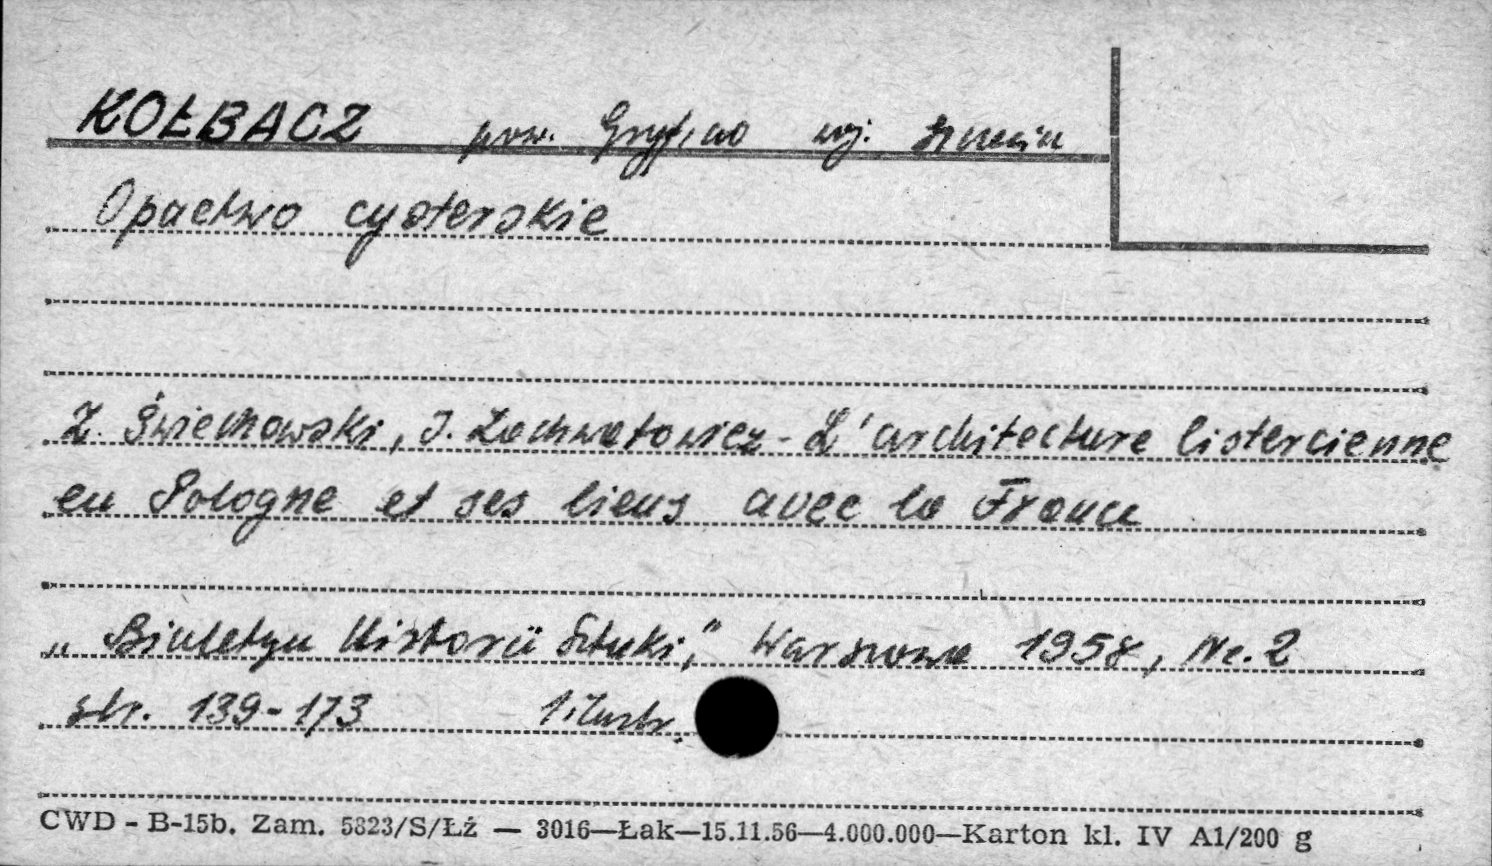 KOŁBACZ pow. Gryfino woj. Szczecin
Opactwo cysterskie
Z. Świechowski, J. Zachwatowicz - L'architecture Cistercienne
en Pologne et ses liens avec la France
„Biuletyn Historii Sztuki," Warszawa 1958, Nr. 2
str. 139-173 ilustr.
CWD - B-15b. Zam. 5823/S/Łż — 3016—Łak—15.11.56—4.000.000—Karton kl. IV A1/200 g